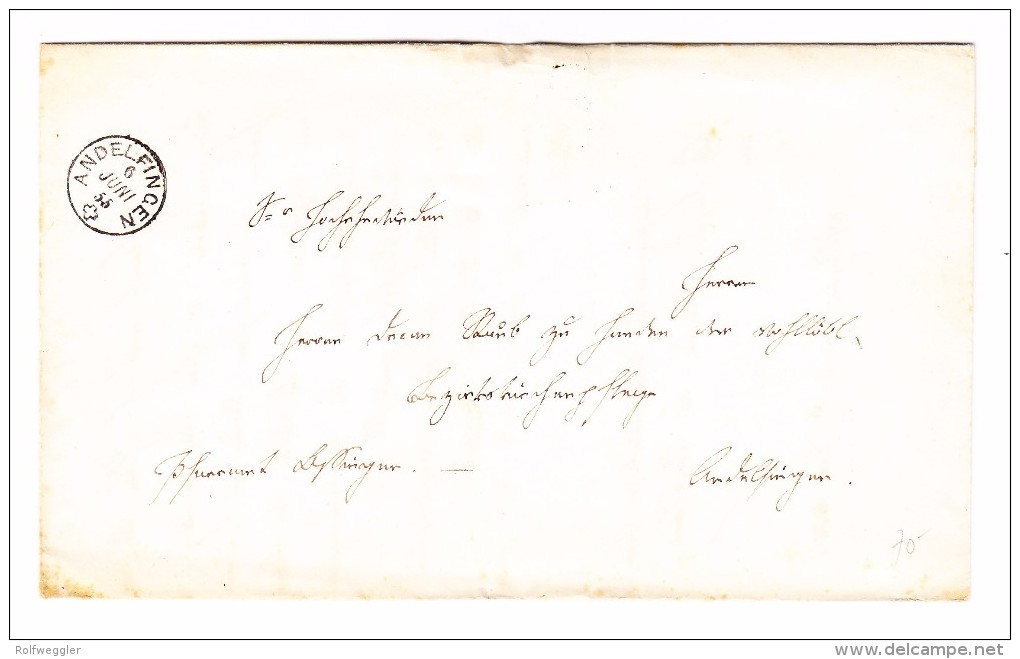 ANDELFINGEN
6
JUNI
55
Sr Hochehrwürden
Herrn
Herrn Decan zu Handen der wohllöbl.
Bezirkskirchenpflege
Pfarramt Ossingen. —
Andelfingen.
70-
Rolfweggler
www.delcampe.net